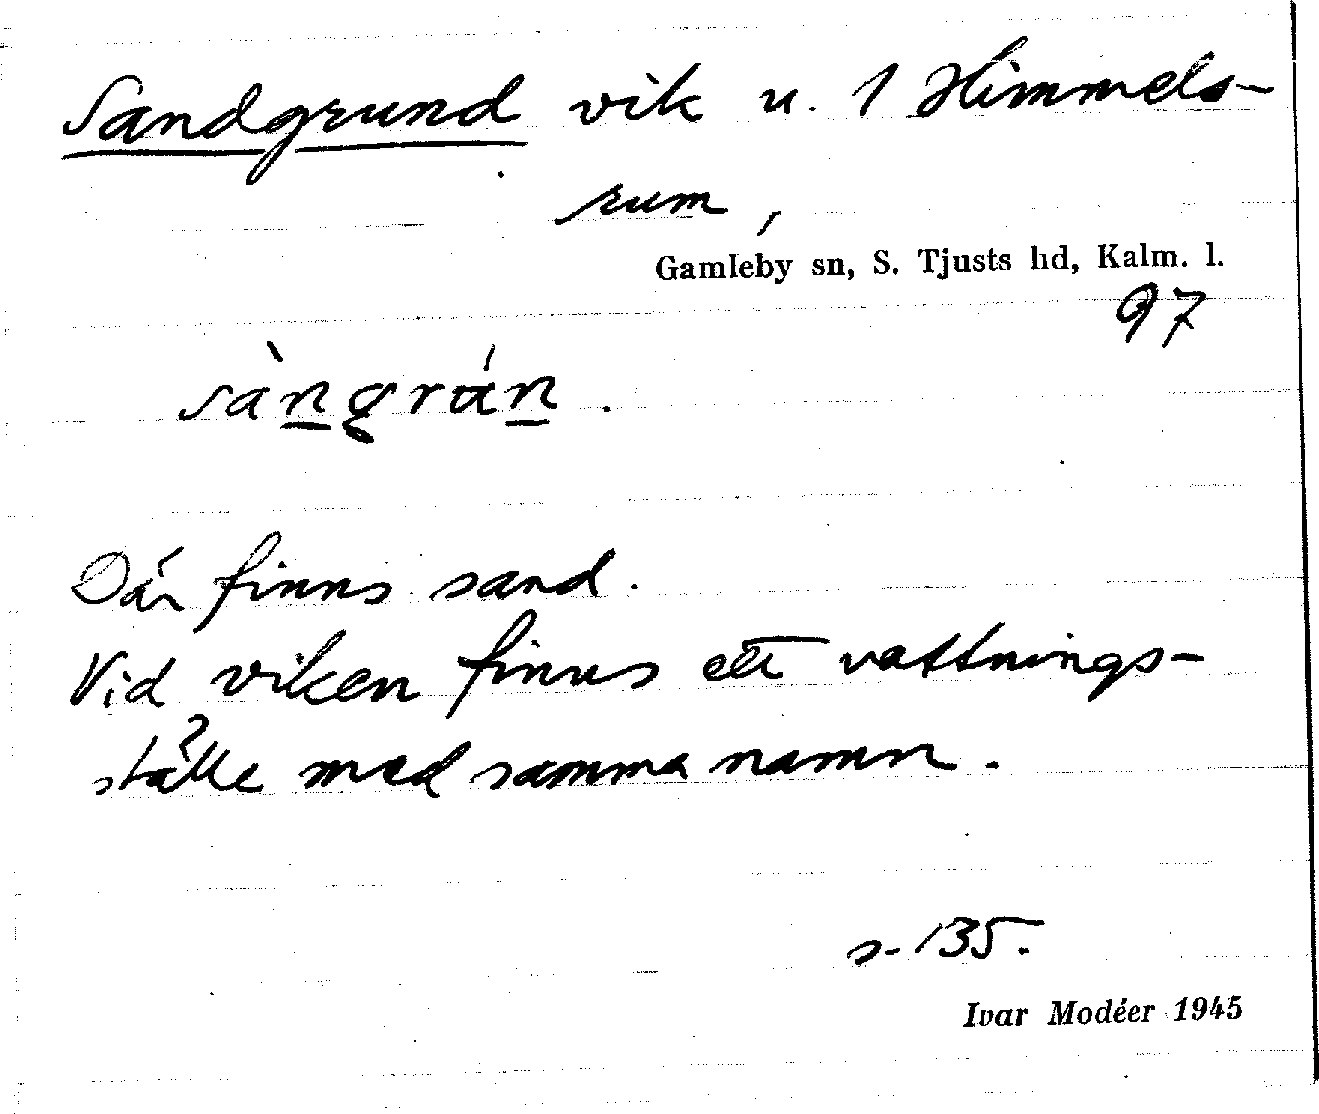 Sandgrund vik u. 1 Himmels-
rum,
Gamleby sn, S. Tjusts hd, Kalm. l.
97
Där finns sand.
Vid viken finns ett vattnings-
ställe med samma namn.
s. 135.
Ivar Modéer 1945